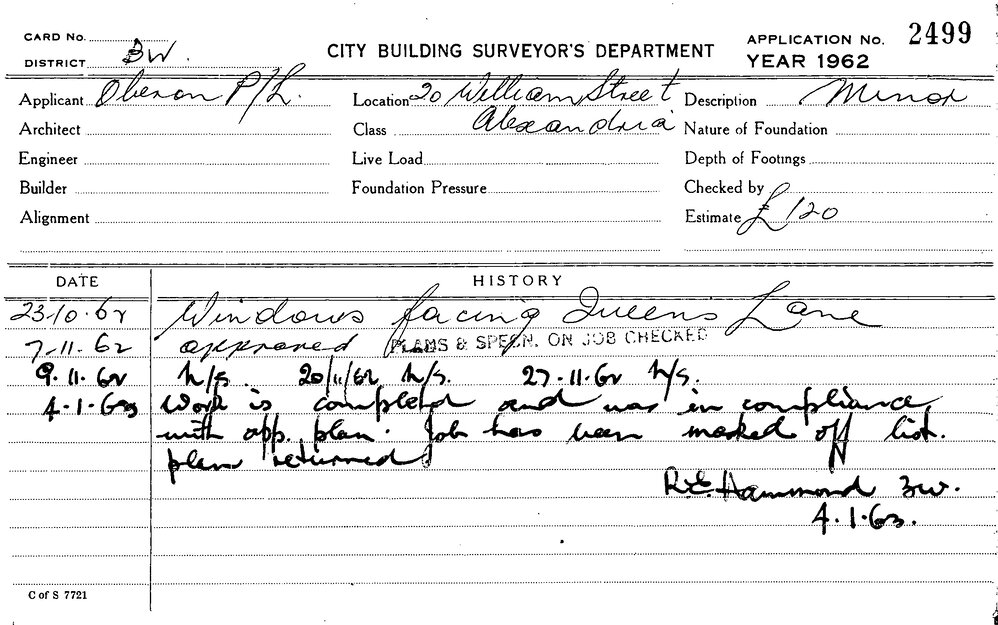 CARD No.
DISTRICT BW.
CITY BUILDING SURVEYOR'S DEPARTMENT
APPLICATION No. 2499
YEAR 1962
Applicant Oberon P/L. Location 20 William Street Description Minor
Architect Class Alexandria Nature of Foundation
Engineer Live Load Depth of Footings
Builder Foundation Pressure Checked by
Alignment Estimate £120
DATE HISTORY
23-10-62 Windows facing Queens Lane
7-11-62 approved PLANS & SPECN. ON JOB CHECKED
9.11.62 N/S. 20/11/62 N/S. 27.11.62 N/S.
4.1.63 Work is completed and was in compliance
with app. plan. Job has been marked off list.
plan returned
R.E. Hammond BW.
4.1.63.
C of S 7721